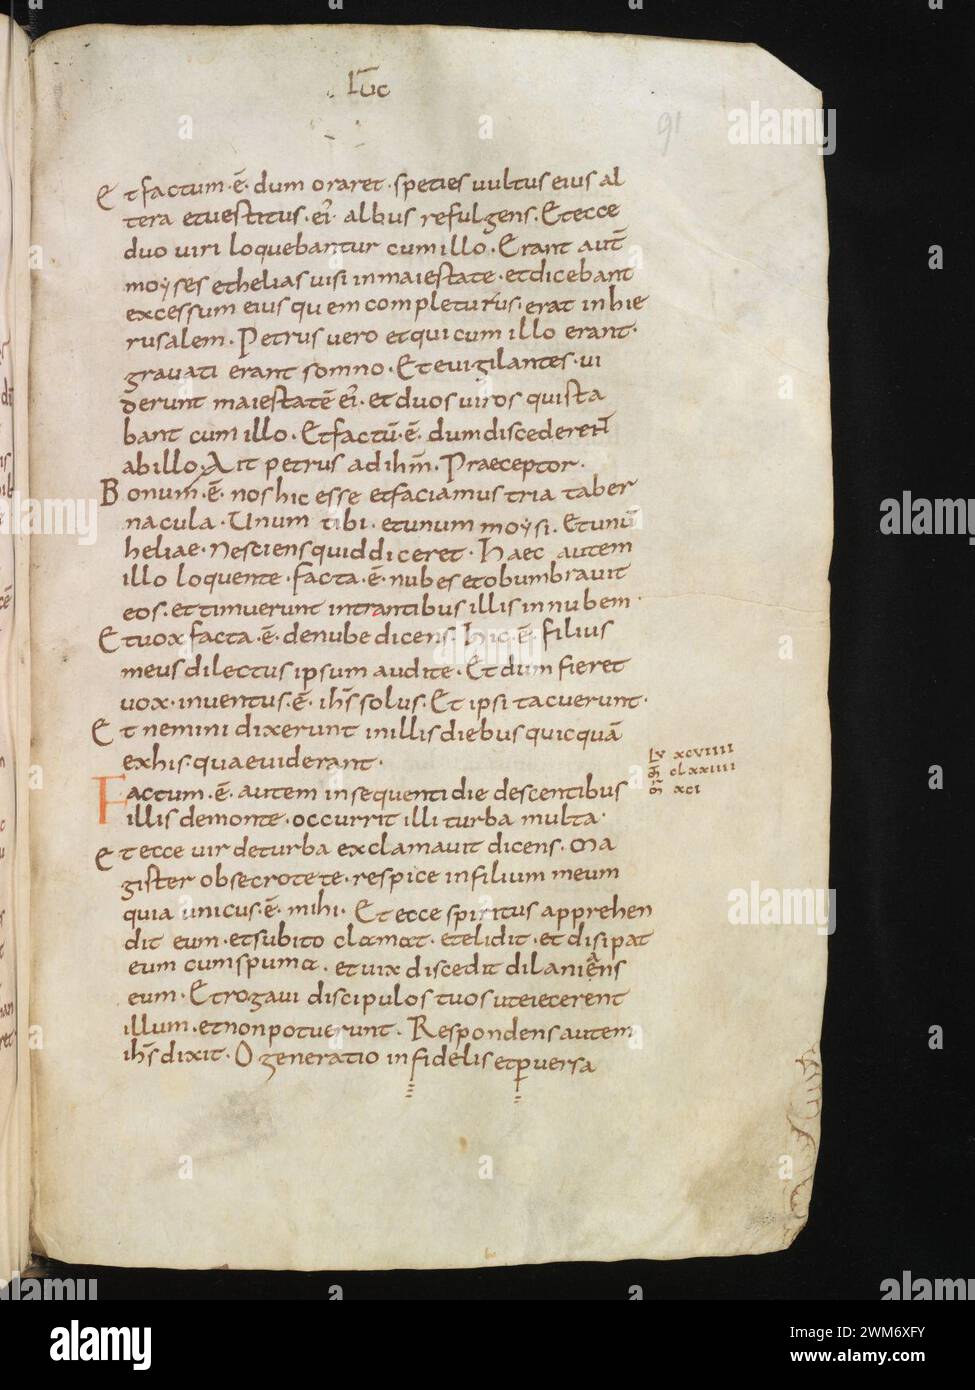 LUC
91
Et factum · ē · dum oraret · speties uultus eius al
tera et uestitus · ei' · albus refulgens. Et ecce
duo uiri loquebantur cum illo · Erant aut̄
moyses et helias uisi in maiestate · et dicebant
excessum eius quem completurus · erat in hie
rusalem · Petrus uero et qui cum illo erant ·
grauati erant somno · Et euigilantes · ui
derunt maiestatē ei' · et duos uiros qui sta
bant cum illo · Et factū · ē · dum discederent
ab illo · Ait petrus ad ihm̄ · Praeceptor ·
Bonum · ē · nos hic esse et faciamus tria taber
nacula · Unum tibi · et unum moysi · Et unū
heliae · Nesciens quid diceret · Haec autem
illo loquente · facta · ē · nubes et obumbrauit
eos · et timuerunt intrantibus illis in nubem ·
Et uox facta · ē · de nube dicens · Hic · ē · filius
meus dilectus ipsum audite · Et dum fieret
uox · inuentus · ē · ihs̄ solus · Et ipsi tacuerunt ·
Et nemini dixerunt in illis diebus quicquā
ex his quae uiderant ·
Lv xcviiii
clxxiiii
xci
Factum · ē · autem in sequenti die descentibus
illis de monte · occurrit illi turba multa ·
Et ecce uir de turba exclamauit dicens · Ma
gister obsecro te te · respice in filium meum
quia unicus · ē · mihi · Et ecce spiritus apprehen
dit eum · et subito clamat · et elidit · et disipat
eum cum spuma · et uix discedit dilaniens
eum · Et rogaui discipulos tuos ut eiecerent
illum · et non potuerunt · Respondens autem
ihs̄ dixit · O generatio infidelis et puersa
alamy
Image ID: 2WM6XFY
www.alamy.com